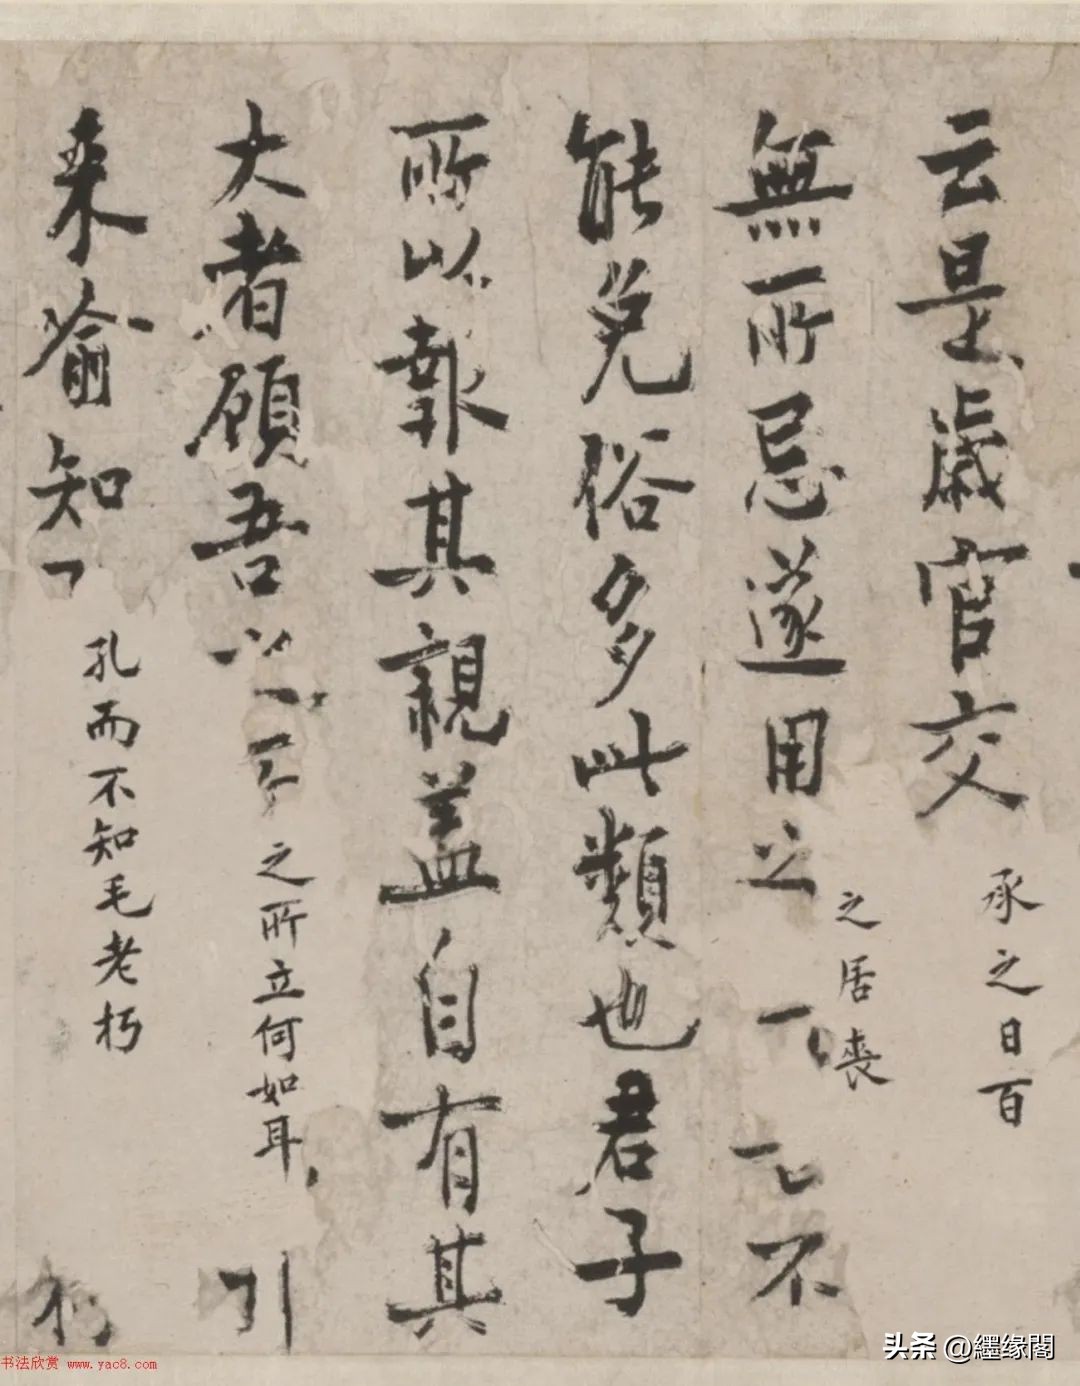 云是歲官交
承之日百
無所忌遂用之
之居喪
不
能免俗多此類也君子
所以報其親蓋自有其
大者顧吾以
之所立何如耳
来喻知
孔而不知毛老朽
书法欣赏 www.yac8.com
头条 @繼缘閣